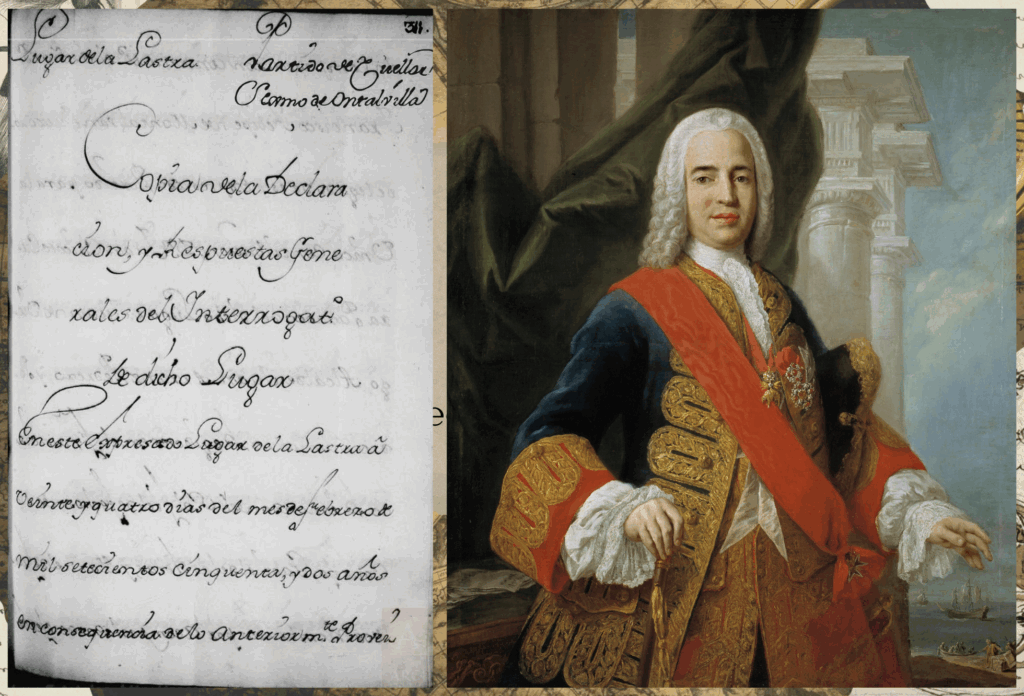 311.
Lugar de la Lastra Partido de Cuellar
Sexmo de Ontalvilla
Copia de la Declara
cion, y Respuestas Gene
rales del Interrogat.º
de dicho Lugar
En este Expresado Lugar de la Lastra â
veinte y quatro dias del mes de febrero de
mil setecientos cinquenta, y dos años
en consequencia de lo Anteriorm.te Proveî
e